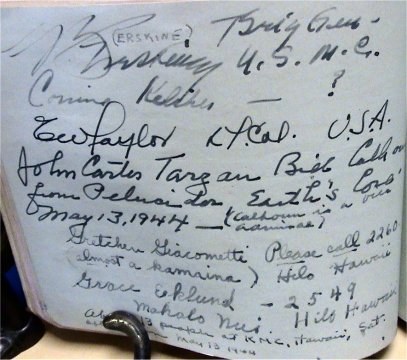 (ERSKINE) Brig Gen.
Erskine U.S.M.C.
Coming —
?
E W Taylor Lt. Col. U.S.A.
John Carter Tarzan Bid Calhoun
from Pelucidar Earth's Core
May 13, 1944 — (Calhoun is a
Admiral)
Gretchen Giacometti Please call 2260
(almost a kamaaina) Hilo Hawaii
Grace Eklund - 2549
Mahalo Nui. Hilo Hawaii
people at K.M.C., Hawaii,
May 13